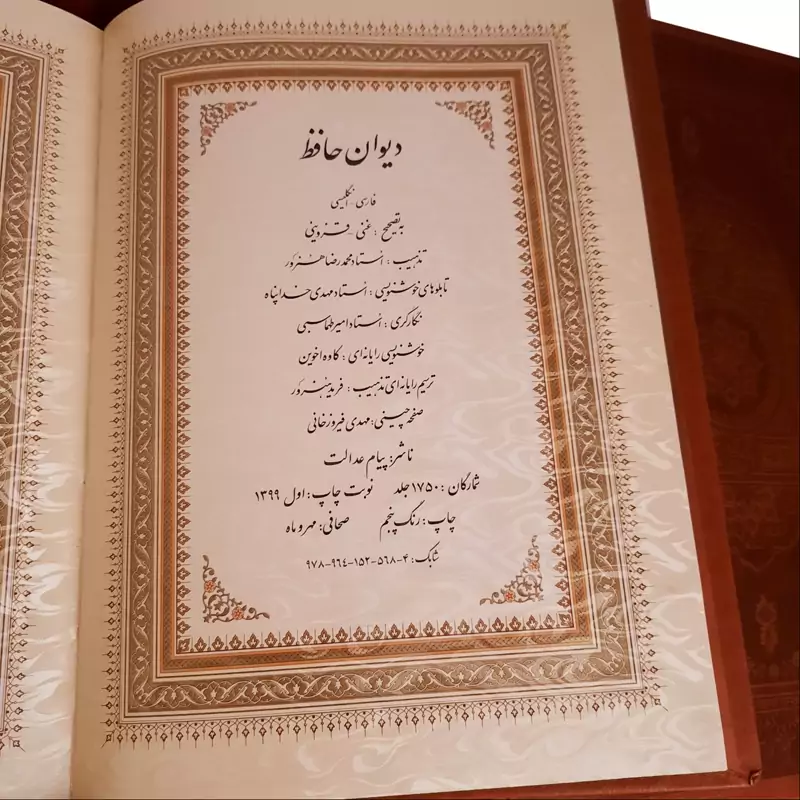 دیوان حافظ
فارسی - انگلیسی
به تصحیح : غنی - قزوینی
تذهیب : استاد محمدرضا هنرور
تابلوهای خوشنویسی : استاد مهدی خداپناه
نگارگری : استاد امیر طهماسبی
خوشنویسی رایانه ای : کاوه اخوین
ترسیم رایانه ای تذهیب : فرید هنرور
صفحه چینی : مهدی فیروزخانی
ناشر : پیام عدالت
شمارگان : ۱۷۵۰ جلد نوبت چاپ : اول ۱۳۹۹
چاپ : رنگ پنجم صحافی : مهر و ماه
شابک : ۴-۵۶۸-۱۵۲-۹۶۴-۹۷۸